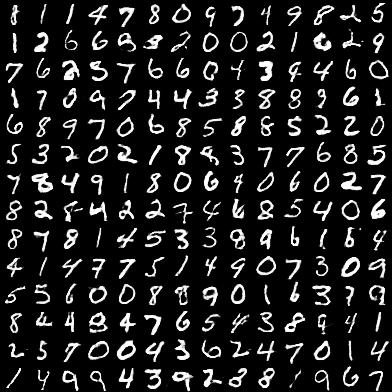 8 1 1 4 7 8 0 9 7 4 9 8 2 5
1 2 6 6 3 2 0 0 2 1 6 2 9
7 6 2 5 7 6 6 0 4 3 9 4 6 0
1 7 0 9 7 4 4 3 3 8 8 9 6 1
6 8 9 7 0 6 8 5 8 8 5 2 2 0
5 3 2 0 2 1 8 8 3 7 7 6 8 5
7 8 4 9 1 8 0 6 4 0 6 0 2 7
8 2 8 4 2 2 7 4 6 8 5 4 0 6
8 7 8 1 4 5 3 3 9 8 9 6 1 6 4
4 1 4 7 7 5 1 4 9 0 7 3 0 9
5 5 6 0 0 8 8 9 0 1 6 3 7 9
8 4 4 8 4 7 6 5 4 3 8 9 4 1
2 5 7 0 0 4 3 6 2 4 7 0 1 4
1 4 9 9 4 3 9 2 8 8 1 9 6 7